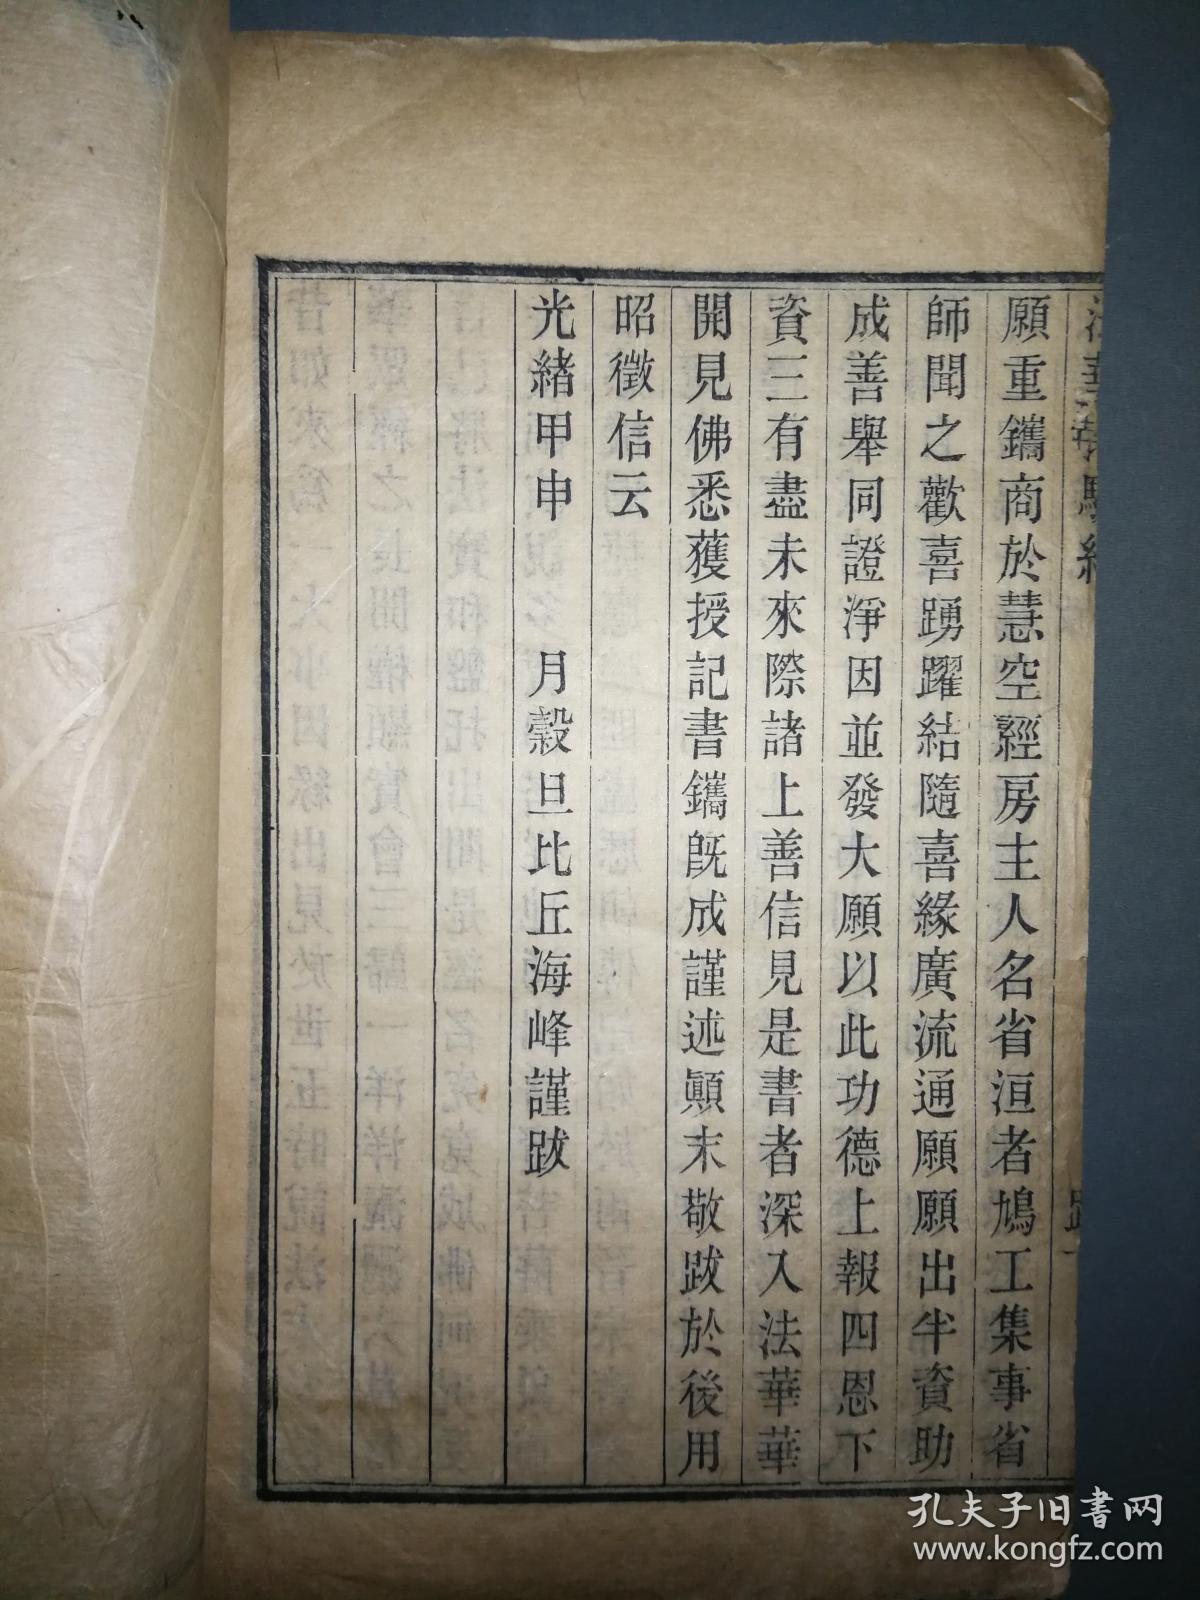 法華靈驗
跋一
願重鐫商於慧空經房主人名省洹者鳩工集事省
師聞之歡喜踴躍結隨喜緣廣流通願願出半資助
成善舉同證淨因並發大願以此功德上報四恩下
資三有盡未來際諸上善信見是書者深入法華華
開見佛悉獲授記書鐫旣成謹述顚末敬跋於後用
昭徵信云
光緒甲申 月穀旦比丘海峰謹跋
孔夫子旧书网
www.kongfz.com